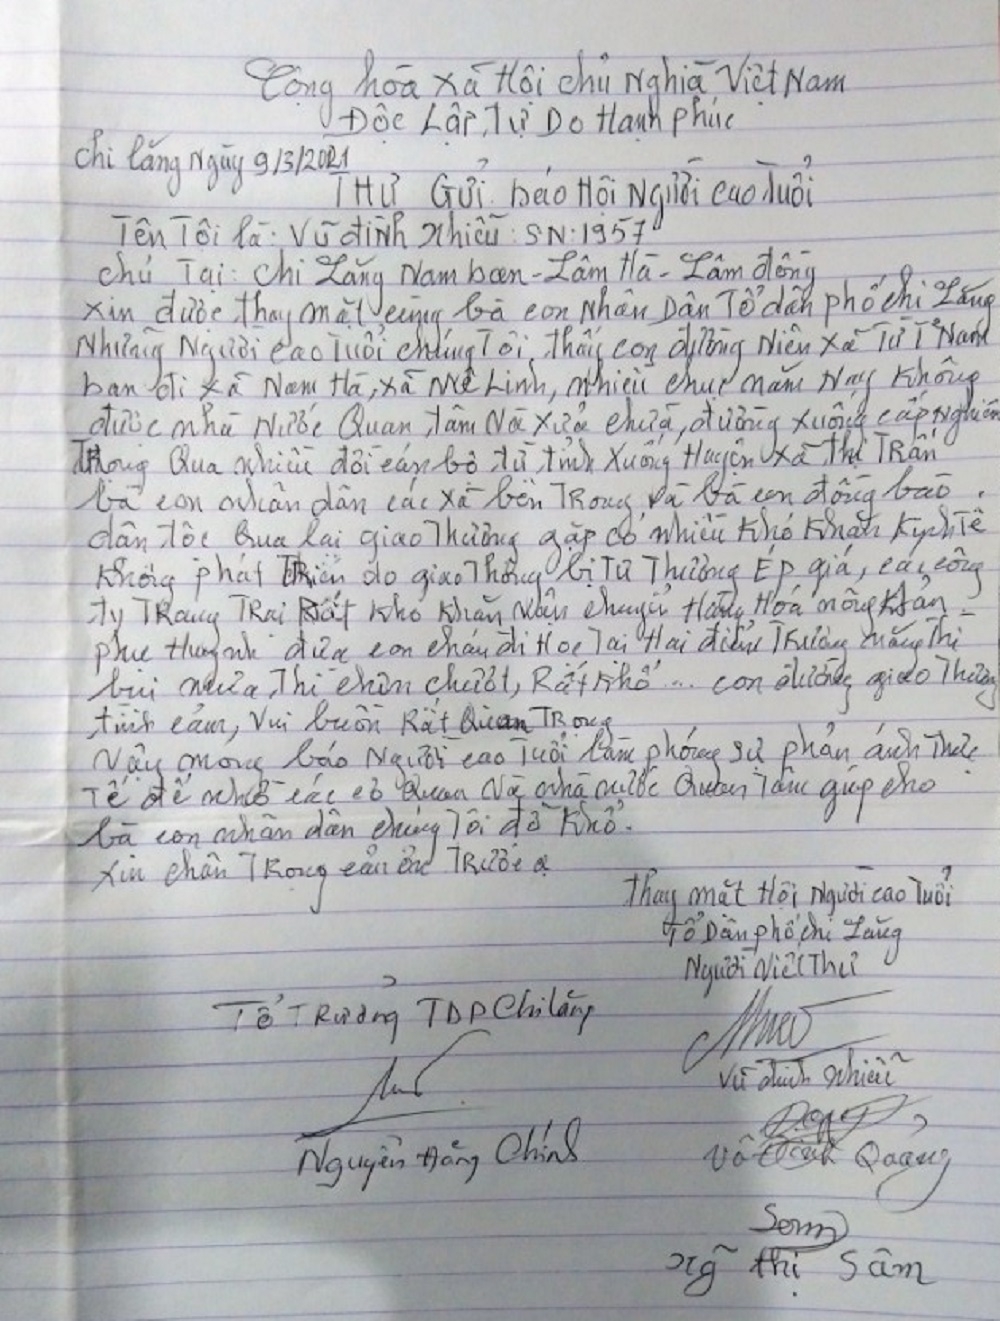 Cộng hòa xã Hôi chủ Nghiã Việt Nam
Độc Lập, Tự Do Hạnh phúc
Chi lăng Ngày 9/3/2021
THƯ Gửi báo Hôi Người cao Tuổi
Tên Tôi là: Vũ đình Nhiễu: SN:1957
chú Tại: Chi Lăng Nam ban - Lâm Hà - Lâm đồng
xin được thay mặt cùng bà con Nhân Dân Tổ dân phố chi Lăng
Những Người cao Tuổi chúng Tôi, thấy con đường liên xã Từ TT Nam
ban đi xã Nam Hà, xã mê Linh, nhiều chục năm Nay không
được nhà Nước Quan tâm và xửa chữa, đường xuống cấp nghiêm
Trong Qua nhiều đời cán bô từ tỉnh xuống Huyện xã Thị Trấn
bà con nhân dân các xã bên Trong và bà con đồng bào
dân tôc Qua lai giao Thương gặp có nhiều khó khăn kinh Tế
không phát Triển do giao Thông bị Tư Thương Ép giá, các công
ty Trang Trai Rất khó khăn vân chuyển Hàng Hoá nông sản
phu Huynh đưa con cháu đi Hoc Tai Hai điểm Trường nắng Thì
bui mưa, Thì chơn chươt, Rất khổ... con đường giao Thương
tình cảm, vui buồn Rất Quan Trọng
Vậy mong báo Người cao Tuổi làm phóng sự phản ánh Thực
Tế để nhờ các cơ Quan và nhà nước Quan Tâm giúp cho
bà con nhân dân chúng Tôi đỡ khổ.
xin chân Trong cảm ơn Trước ạ
Thay mặt Hội Người cao Tuổi
Tổ Dân phố chi Lăng
Người Viết Thư
Tổ Trưởng TDP Chi lăng
Vũ đình Nhiễu
Nguyễn Hồng Chính
Võ Quảng
Ng~ thị Sâm